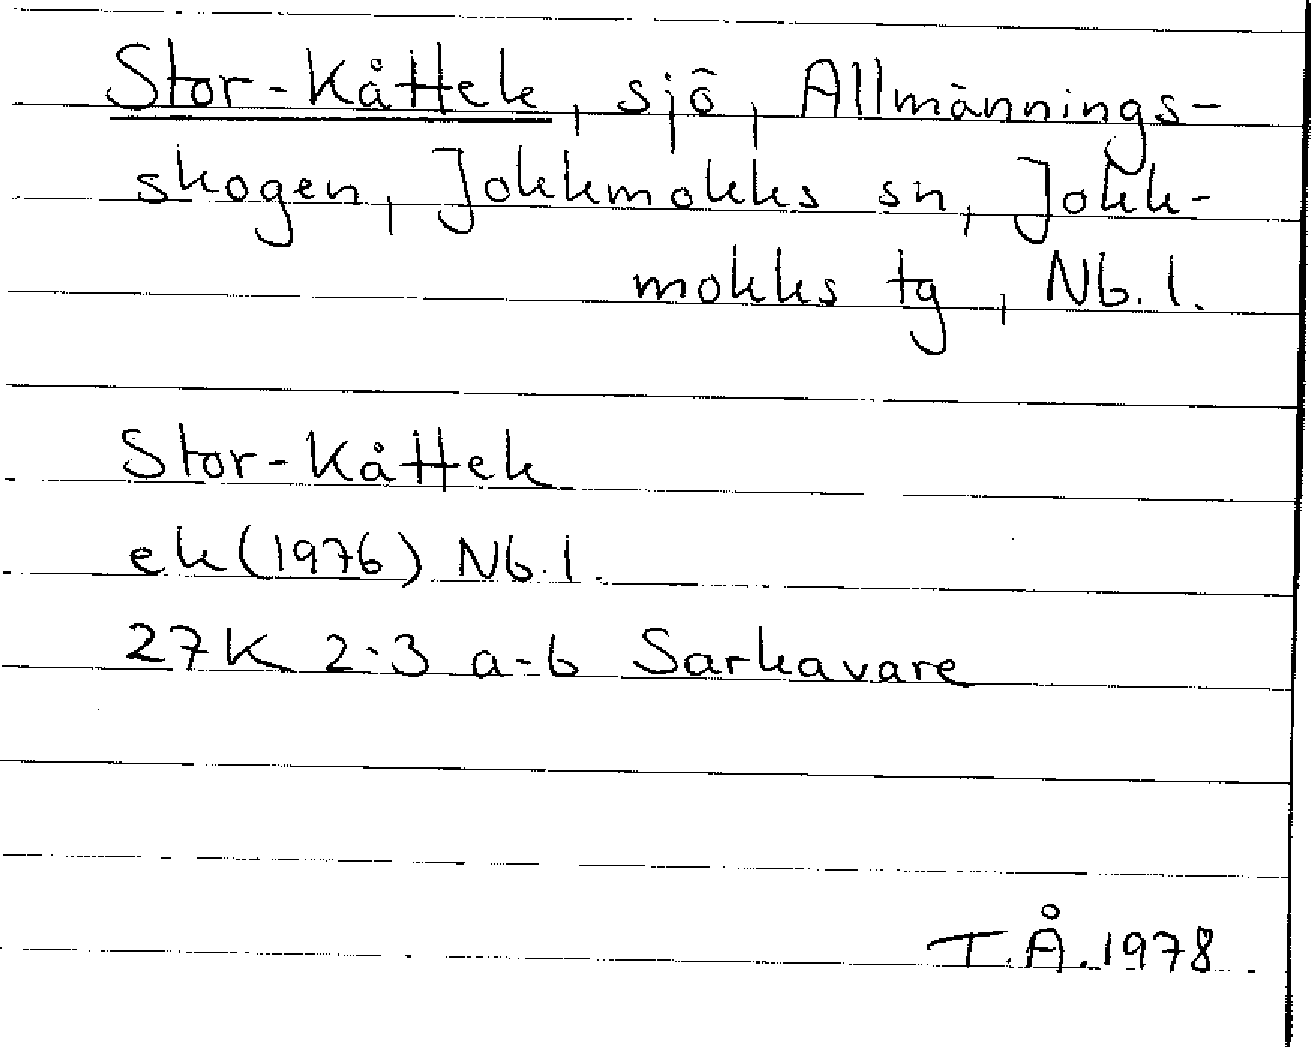 Stor-Kåttek, sjö, Allmännings-
skogen, Jokkmokks sn, Jokk-
mokks tg, Nb. l.
Stor-Kåttek
ek (1976) Nb. l.
27K 2-3 a-b Sarkavare
T.Å. 1978.